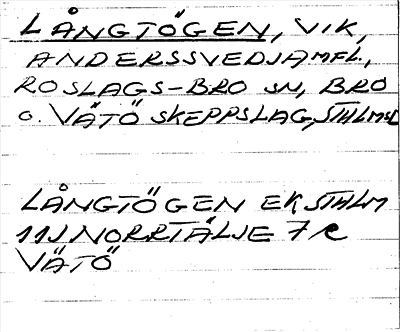 LÅNGTÖGEN, VIK,
ANDERSSVEDJA MFL.,
ROSLAGS-BRO SN, BRO
O. VÄTÖ SKEPPSLAG, STHLMSL
LÅNGTÖGEN EK STHLM
11J NORRTÄLJE 7
VÄTÖ